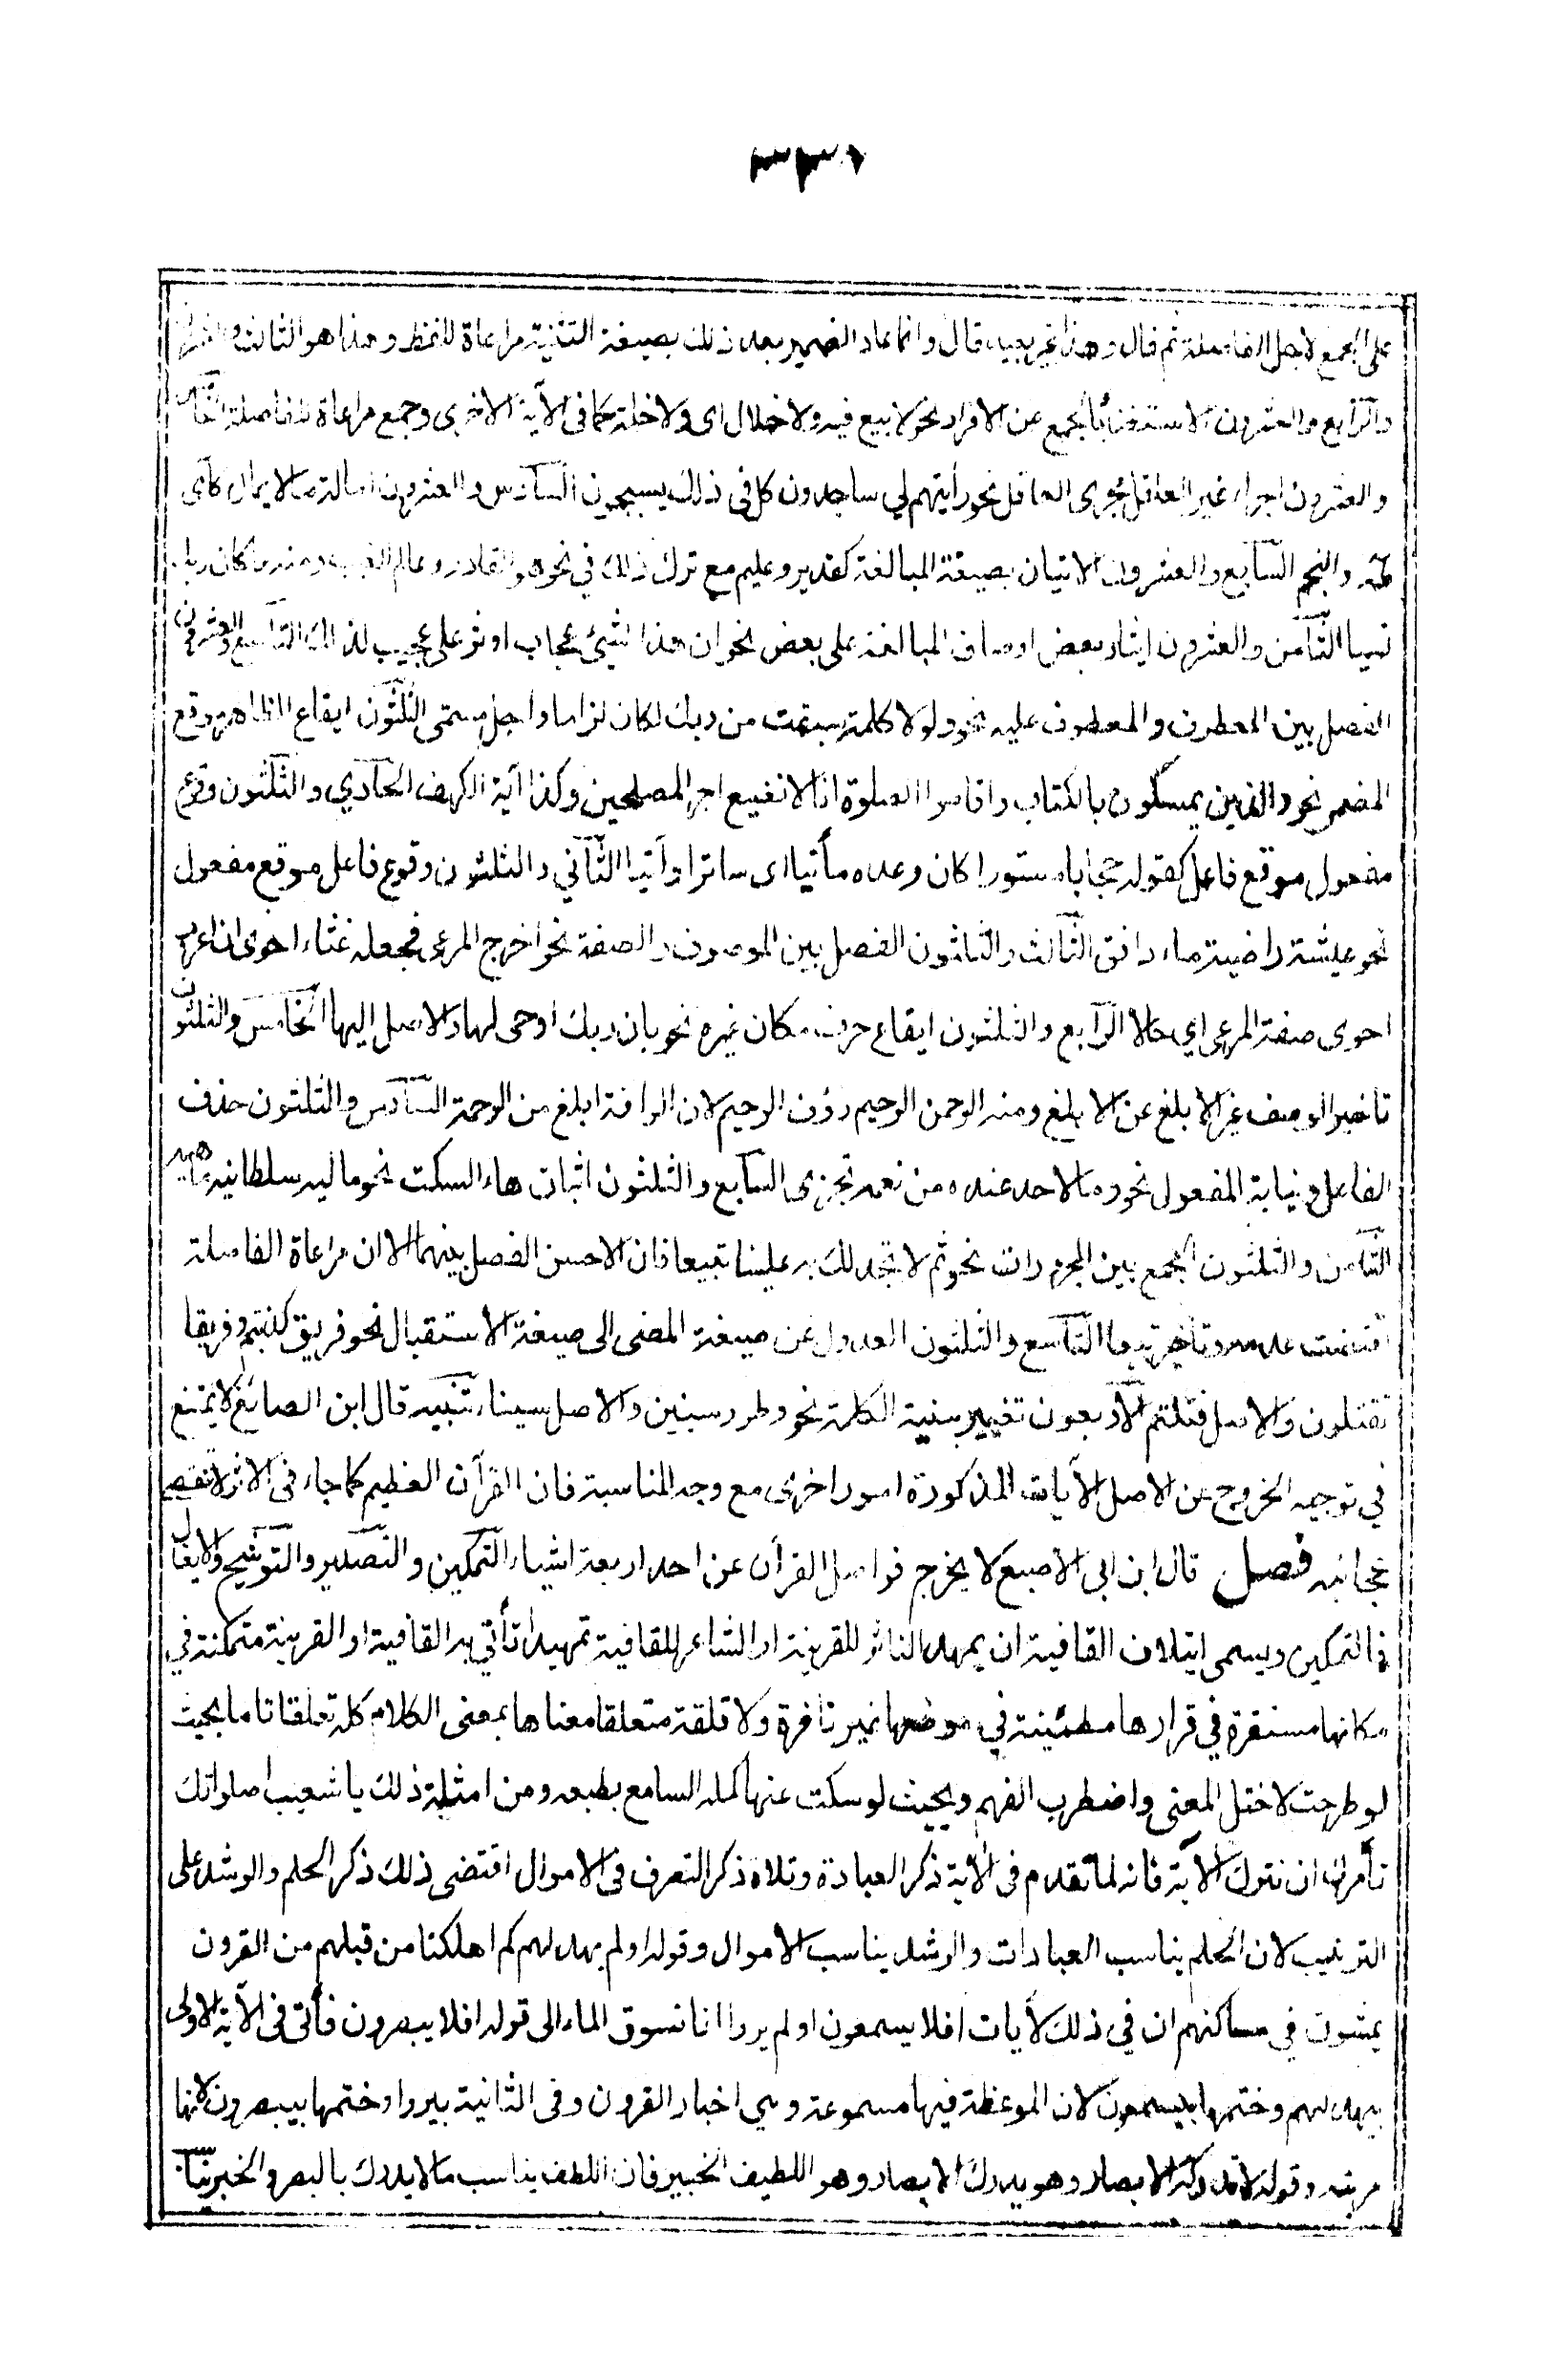 على الجمع لاجل الفاصلة ثم قال وهذا غير بعيد قال وانما عاد الضمير بعد ذلك بصيغة التثنية مراعاة للفظ وهذا هو الثالث والعشرون
والرابع والعشرون الاستغناء بالجمع عن الافراد نحو لا بيع فيه ولا خلال اى ولا خلة كما فى الآية الاخرى وجمع مراعاة للفاصلة الخامس
والعشرون اجراء غير العاقل مجرى العاقل نحو رأيتهم لي ساجدون كل فى ذلك يسبحون السادس والعشرون امالة ما لا يمال كآى
طه والنجم السابع والعشرون الاتيان بصيغة المبالغة كقدير وعليم مع ترك ذلك في نحو هو القادر وعالم الغيب ومنه ما كان ربك
نسيا الثامن والعشرون ايثار بعض اوصاف المبالغة على بعض نحو ان هذا لشيئ عجاب اوثر على عجيب لذلك التاسع والعشرون
الفصل بين المعطوف والمعطوف عليه نحو ولولا كلمة سبقت من ربك لكان لزاما واجل مسمى الثلثون ايقاع الظاهر موقع
المضمر نحو والذين يمسكون بالكتاب واقاموا الصلوة انا لا نضيع اجر المصلحين وكذا آية الكهف الحادي والثلثون وقوع
مفعول موقع فاعل كقوله حجابا مستورا كان وعده مأتيا اى ساترا وآتيا الثاني والثلثون وقوع فاعل موقع مفعول
نحو عيشة راضية ماء دافق الثالث والثلثون الفصل بين الموصوف والصفة نحو اخرج المرعى فجعله غثاء احوى ان اعرب
احوى صفة المرعى اي حالا الرابع والثلثون ايقاع حرف مكان غيره نحو بان ربك اوحى لها والاصل اليها الخامس والثلثون
تاخير الوصف غير الابلغ عن الابلغ ومنه الرحمن الرحيم رؤف الرحيم لان الرافة ابلغ من الرحمة السادس والثلثون حذف
الفاعل ونيابة المفعول نحو وما لاحد عنده من نعمة تجزى السابع والثلثون اثبات هاء السكت نحو ماليه سلطانيه ماهيه
الثامن والثلثون الجمع بين المجرورات نحو ثم لا تجد لك به علينا تبيعا فان الاحسن الفصل بينهما الا ان مراعاة الفاصلة
اقتضت عدمه وتاخير تبيعا التاسع والثلثون العدول عن صيغة المضى الى صيغة الاستقبال نحو فريقا كذبتم وفريقا
تقتلون والاصل قتلتم الاربعون تغيير بنية الكلمة نحو وطور سينين والاصل سيناء تنبيه قال ابن الصائغ لا يمتنع
في توجيه الخروج عن الاصل الآيات المذكورة امور اخرى مع وجه المناسبة فان القرآن العظيم كما جاء فى الاثر لا تنقضي
عجائبه فصل قال ابن ابى الاصبع لا يخرج فواصل القرآن عن احد اربعة اشياء التمكين والتصدير والتوشيح والايغال
فالتمكين ويسمى ايتلاف القافية ان يمهد الناثر للقرينة او الشاعر للقافية تمهيدا تأتي به القافية او القرينة متمكنة في
مكانها مستقرة في قرارها مطمئينة في موضعها غير نافرة ولا قلقة متعلقا معناها بمعنى الكلام كله تعلقا تاما بحيث
لو طرحت لاختل المعنى واضطرب الفهم وبحيث لو سكت عنها كمله السامع بطبعه ومن امثلة ذلك يا شعيب اصلواتك
تأمرك ان نترك الآية فانه لما تقدم فى الآية ذكر العبادة وتلاه ذكر التصرف فى الاموال اقتضى ذلك ذكر الحلم والرشد على
الترتيب لان الحلم يناسب العبادات والرشد يناسب الاموال وقوله اولم يهد لهم كم اهلكنا من قبلهم من القرون
يمشون في مساكنهم ان في ذلك لآيات افلا يسمعون اولم يروا انا نسوق الماء الى قوله افلا يبصرون فأتى فى الآية الاولى
بيهد لهم وختمها بيسمعون لان الموعظة فيها مسموعة وهي اخبار القرون وفى الثانية بيروا وختمها بيبصرون لانها
مرئية وقوله لا تدركه الابصار وهو يدرك الابصار وهو اللطيف الخبير فان اللطف يناسب ما لا يدرك بالبصر والخبر